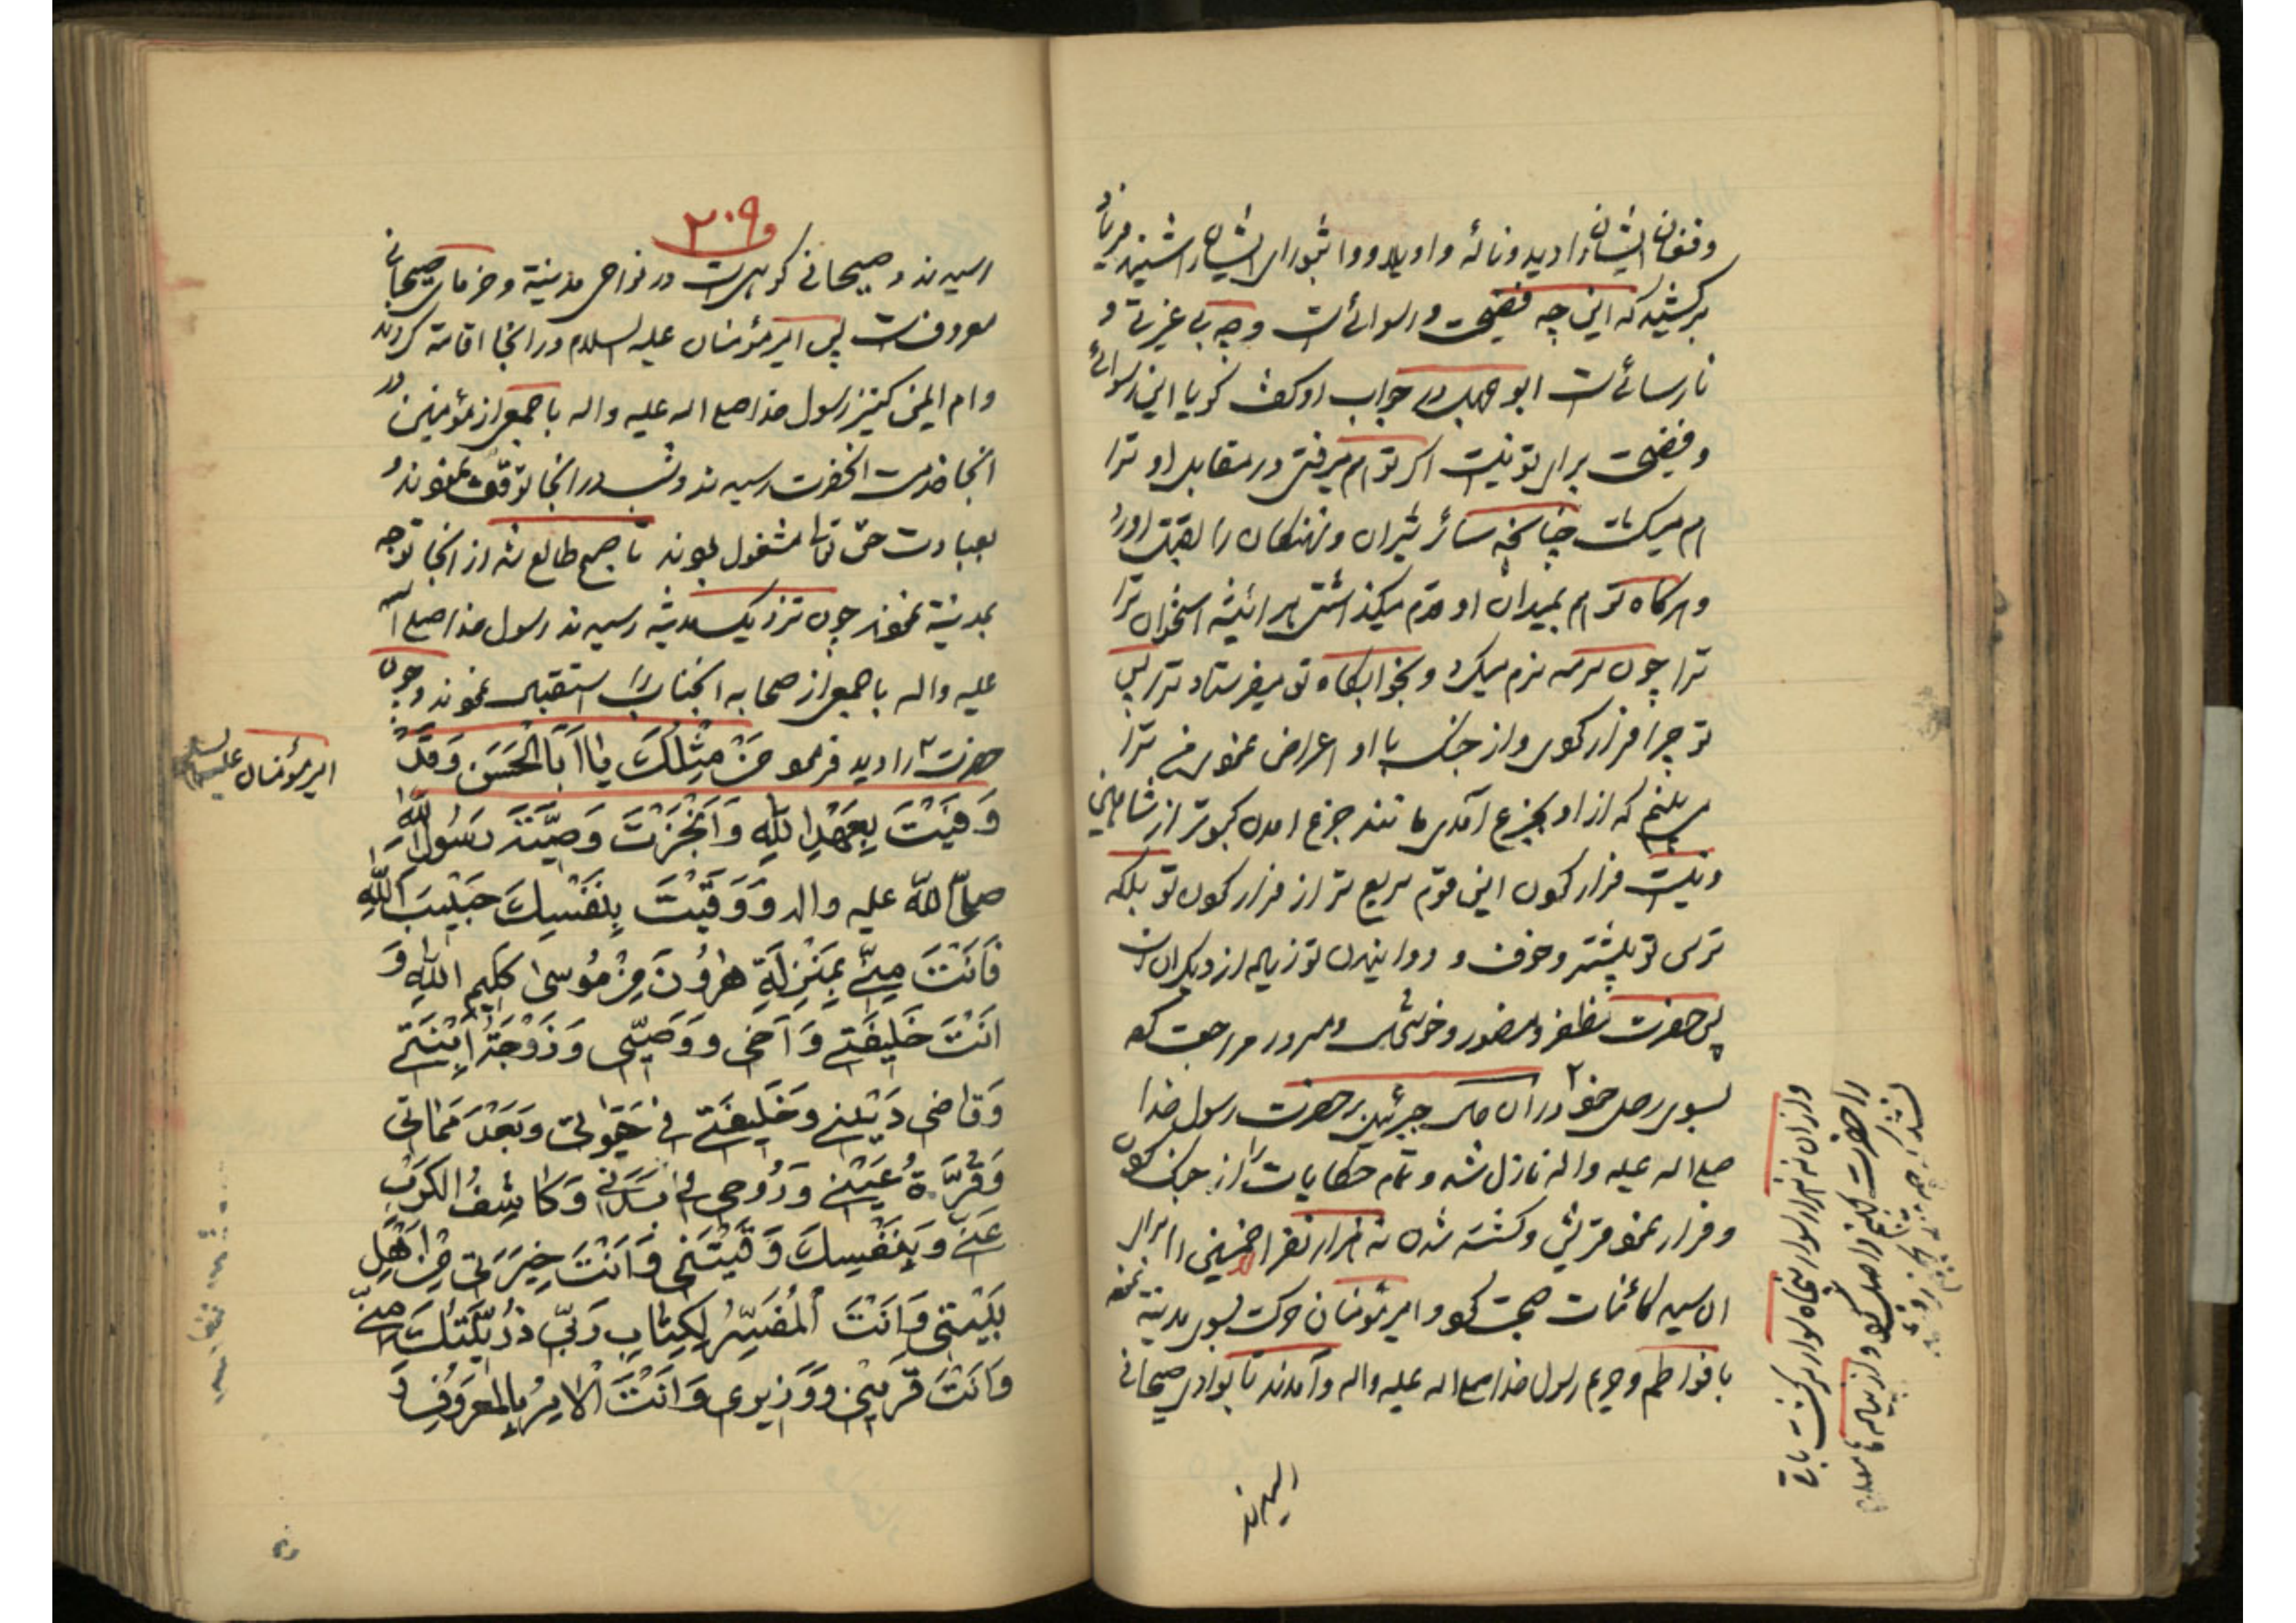 و فغان ایشان را دید و ناله و اویلاو و واثبورای ایشان را شنید فریاد
برکشید که این چه فضیحت و رسوائی است و چه بی غیرتی و
نارسائی است ابوجهل در جواب او گفت گویا این رسوائی
و فضیحت برای تو نیست اگر تو هم میرفتی در مقابل او ترا
هم میکشت چنانچه سائر شیران و نهنگان را بقتل اورد
و هرگاه تو هم بمیدان او قدم میگذاشتی هر ائینه استخوان ترا
ترا چون سرمه نرم میکرد و بخوابگاه تو میفرستاد ترا پس
تو چرا فرار کردی و از جنگ با او اعراض نمودی من ترا
میبینم که از او بجزع آمدی مانند جزع امدن کبوتر از شاهین
و نیست فرار کردن این قوم سریع تر از فرار کردن تو بلکه
ترس تو بیشتر و خوف و دوانیدن تو زیاده از دیگران است
پس حضرت مظفر و منصور و خوشحال و مسرور مراجعت کرد
بسوی رحل خود در آن حال جبرئیل بر حضرت رسول خدا
صلی اله علیه و اله نازل شد و تمام حکایات را از جنگ کردن
و فرار نمودن قریش و کشته شدن نه هزار نفر را
ان سید کائنات صحبت کرد و امیرمؤمنان حرکت بسوی مدینة نموده
با فواطم و حرم رسول خدا صلی اله علیه واله و آمدند تا بوادی صیحانی
رسیدند
و از ان نه هزار سوار پنجاه سوار گریخت باقی
را حضرت بجهنم واصل کرد و از
۲۰۹
رسیدند و صیحانی کوهی است در نواحی مدینة و خرمای صیحانی
معروف است پس امیرمؤمنان علیه السلام در انجا اقامه کردند
و ام ایمن کنیز رسول خدا صلی اله علیه واله با جمعی از مؤمنین در
انجا خدمت انحضرت رسیدند و شب در انجا توقف نمودند و
بعبادت حق تعالی مشغول بودند تا صبح طالع شد از انجا توجه
بمدینة نمودند چون نزدیک مدینه رسیدند رسول خدا صلی اله
علیه واله با جمعی از صحابه انجناب را استقبال نمودند و چون
حضرت را دید فرمود مَنْ مِثْلُكَ يٰا اَبَا الْحَسَنِ وَ قَدْ
امیرمؤمنان علیه السلام
وَفَيْتَ بِعَهْدِ اللّٰهِ وَ اَنْجَزْتَ وَصِيَّةَ رَسُولِ اللّٰهِ
صلّى اللّه عليه واله وَ وَقَيْتَ بِنَفْسِكَ حَبيبَ اللّٰهِ
فَاَنْتَ مِنّي بِمَنْزِلَةِ هٰرُونَ مِنْ مُوسىٰ كَليمِ اللّٰهِ وَ
اَنْتَ خَليفَتي وَ اَخي وَ وَصِيّي وَ زَوْجَةُ اِبْنَتي
وَ قاضي دَيْني وَ خَليفَتي في حَيٰوتي وَ بَعْدَ مَمٰاتي
وَ قُرَّةُ عَيْني وَ رُوحي في بَدَني وَ كٰاشِفُ الْكَرْبِ
عَنّي وَ بِنَفْسِكَ وَقَيْتَني وَ اَنْتَ خِيَرَتي مِنْ اَهْلِ
بَيْتي وَ اَنْتَ الْمُفَسِّرُ لِكِتٰابِ رَبّي ذُرِّيَّتُكَ مِنّي
وَ اَنْتَ قَريني وَ وَزيري وَ اَنْتَ الْاٰمِرُ بِالْمَعْرُوفِ وَ